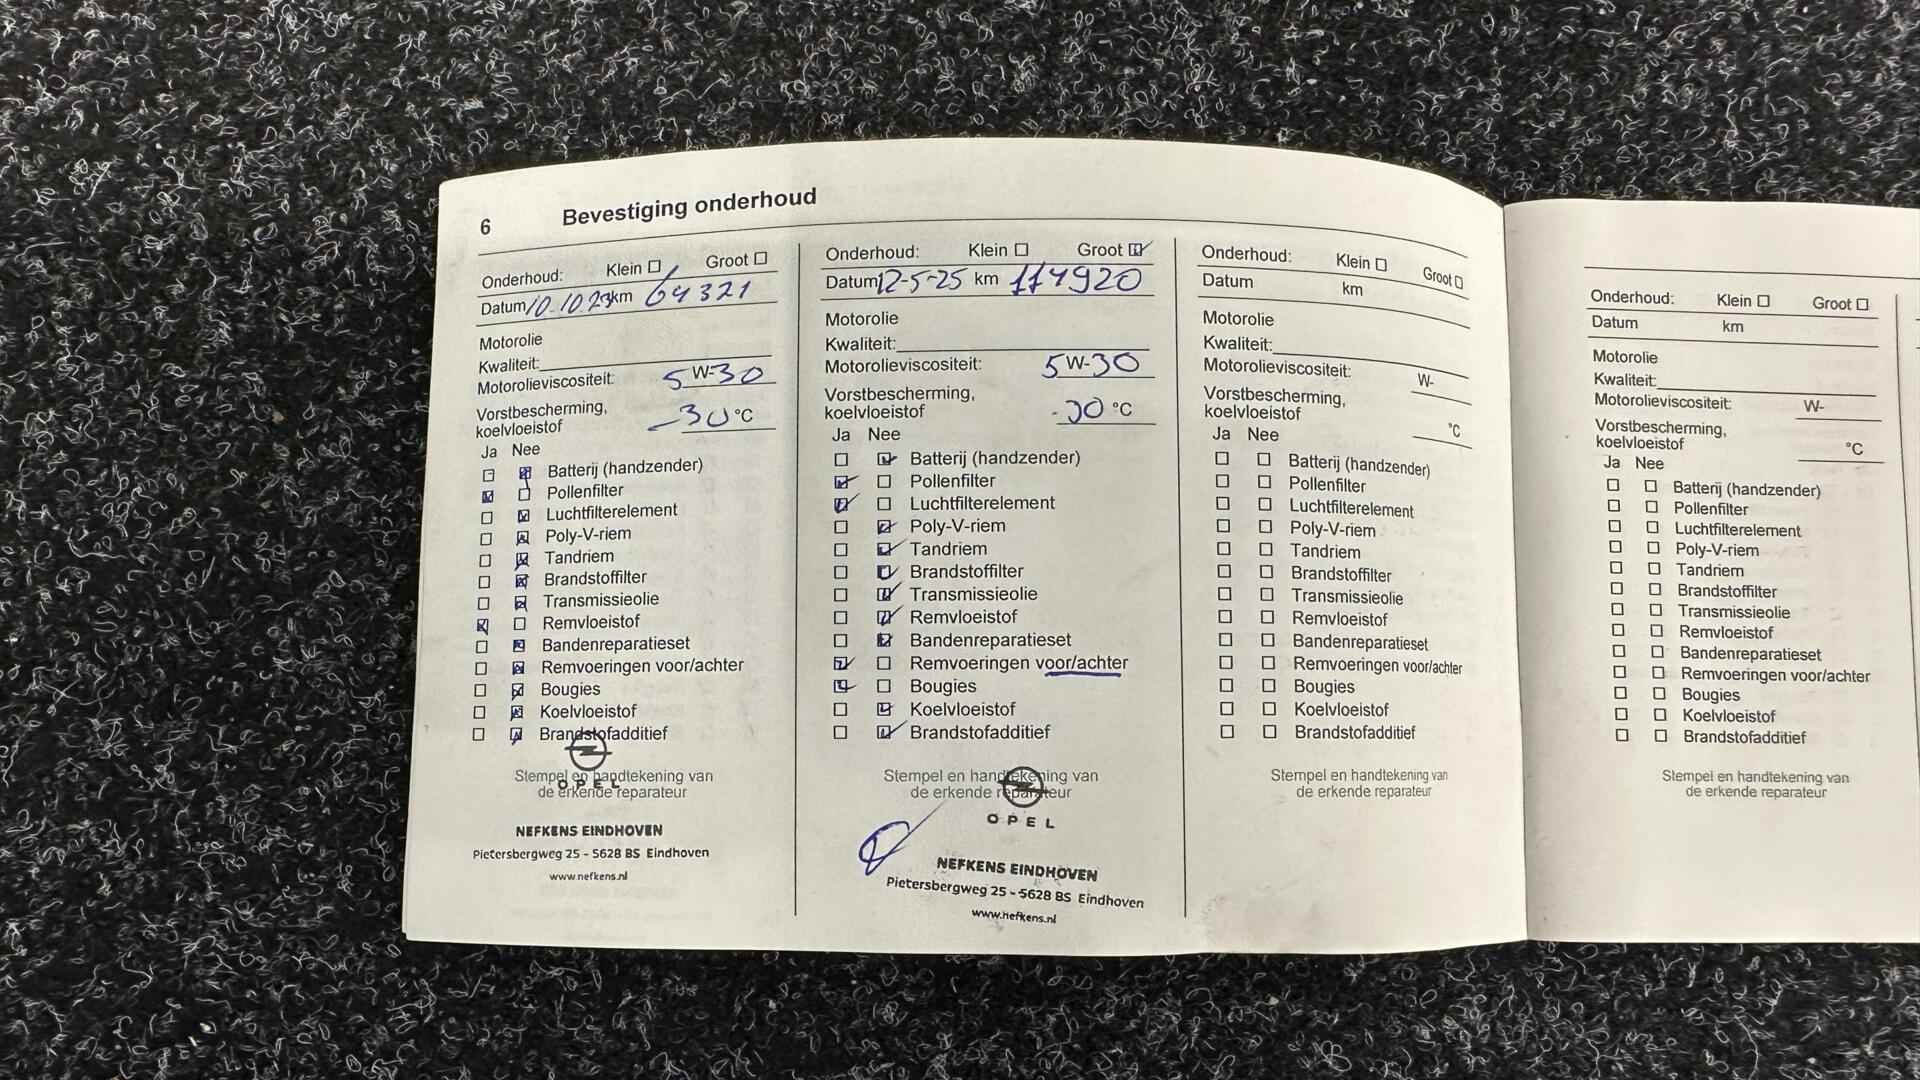 6 Bevestiging onderhoud
Onderhoud: Klein Groot
Datum 10-10.23 km 64321
Motorolie
Kwaliteit:
Motorolieviscositeit: 5 W-30
Vorstbescherming,
koelvloeistof -30 °C
Ja Nee
Batterij (handzender)
Pollenfilter
Luchtfilterelement
Poly-V-riem
Tandriem
Brandstoffilter
Transmissieolie
Remvloeistof
Bandenreparatieset
Remvoeringen voor/achter
Bougies
Koelvloeistof
Brandstofadditief
Stempel en handtekening van
de erkende reparateur
OPEL
NEFKENS EINDHOVEN
Pietersbergweg 25 - 5628 BS Eindhoven
www.nefkens.nl
Onderhoud: Klein Groot
Datum 12-5-25 km 114920
Motorolie
Kwaliteit:
Motorolieviscositeit: 5 W-30
Vorstbescherming,
koelvloeistof -30 °C
Ja Nee
Batterij (handzender)
Pollenfilter
Luchtfilterelement
Poly-V-riem
Tandriem
Brandstoffilter
Transmissieolie
Remvloeistof
Bandenreparatieset
Remvoeringen voor/achter
Bougies
Koelvloeistof
Brandstofadditief
Stempel en handtekening van
de erkende reparateur
OPEL
NEFKENS EINDHOVEN
Pietersbergweg 25 - 5628 BS Eindhoven
www.nefkens.nl
Onderhoud: Klein Groot
Datum km
Motorolie
Kwaliteit:
Motorolieviscositeit: W-
Vorstbescherming,
koelvloeistof °C
Ja Nee
Batterij (handzender)
Pollenfilter
Luchtfilterelement
Poly-V-riem
Tandriem
Brandstoffilter
Transmissieolie
Remvloeistof
Bandenreparatieset
Remvoeringen voor/achter
Bougies
Koelvloeistof
Brandstofadditief
Stempel en handtekening van
de erkende reparateur
Onderhoud: Klein Groot
Datum km
Motorolie
Kwaliteit:
Motorolieviscositeit: W-
Vorstbescherming,
koelvloeistof °C
Ja Nee
Batterij (handzender)
Pollenfilter
Luchtfilterelement
Poly-V-riem
Tandriem
Brandstoffilter
Transmissieolie
Remvloeistof
Bandenreparatieset
Remvoeringen voor/achter
Bougies
Koelvloeistof
Brandstofadditief
Stempel en handtekening van
de erkende reparateur